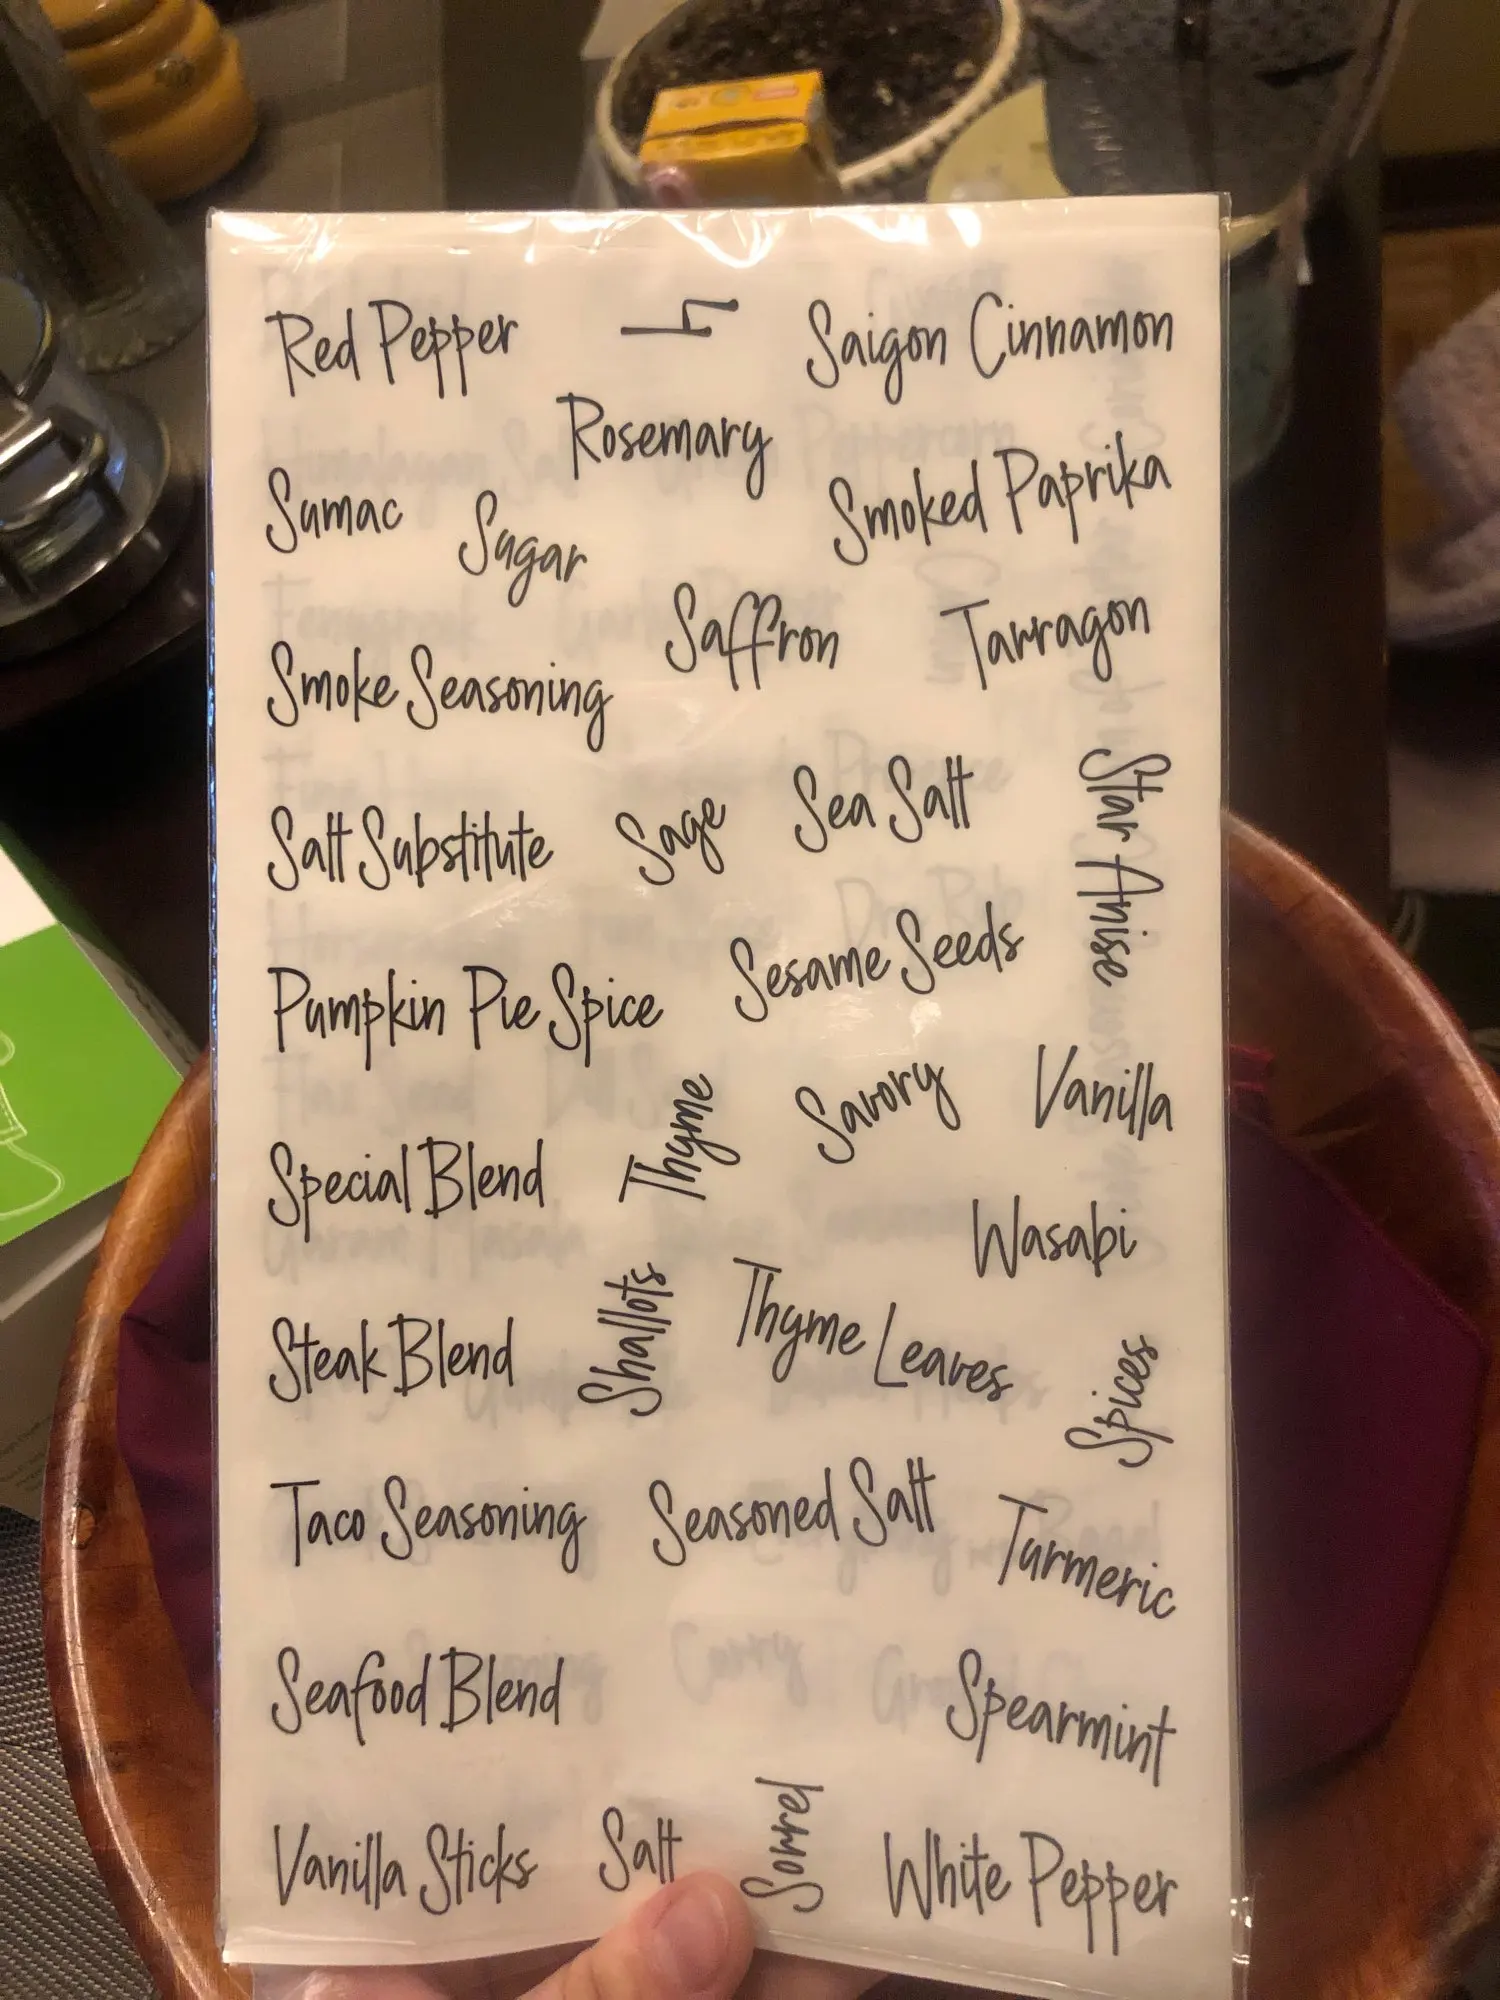 Red Pepper
4
Saigon Cinnamon
Rosemary
Sumac
Sugar
Smoked Paprika
Saffron
Tarragon
Smoke Seasoning
Salt Substitute
Sage
Sea Salt
Star Anise
Pumpkin Pie Spice
Sesame Seeds
Thyme
Savory
Vanilla
Special Blend
Wasabi
Steak Blend
Shallots
Thyme Leaves
Spices
Taco Seasoning
Seasoned Salt
Turmeric
Seafood Blend
Spearmint
Vanilla Sticks
Salt
Sorrel
White Pepper